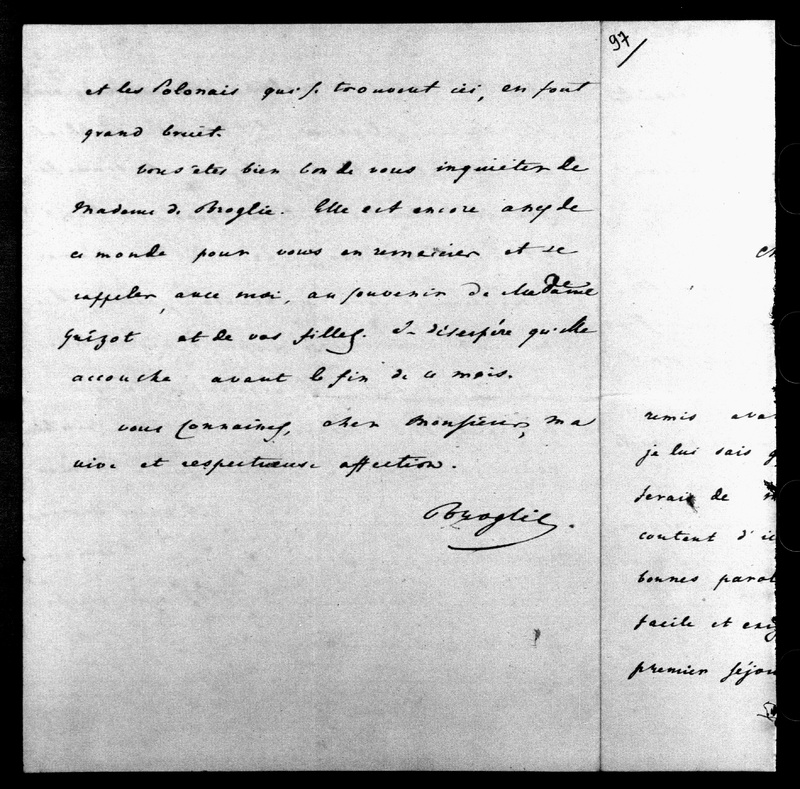 et les Polonais qui se trouvent ici, en font
grand bruit.
Vous êtes bien bon de vous inquiéter de
Madame de Broglie. Elle est encore assez de
ce monde pour vous en remercier et se
rappeler, avec moi, au souvenir de Madame
Guizot et de vos filles. Je désespère qu'elle
accouche avant la fin de ce mois.
Vous connaissez, cher Monsieur, ma
vive et respectueuse affection.
Broglie.
97
remis avan
je lui sais g
serais de
content d'ic
bonnes parol
facile et exi
premier séjou